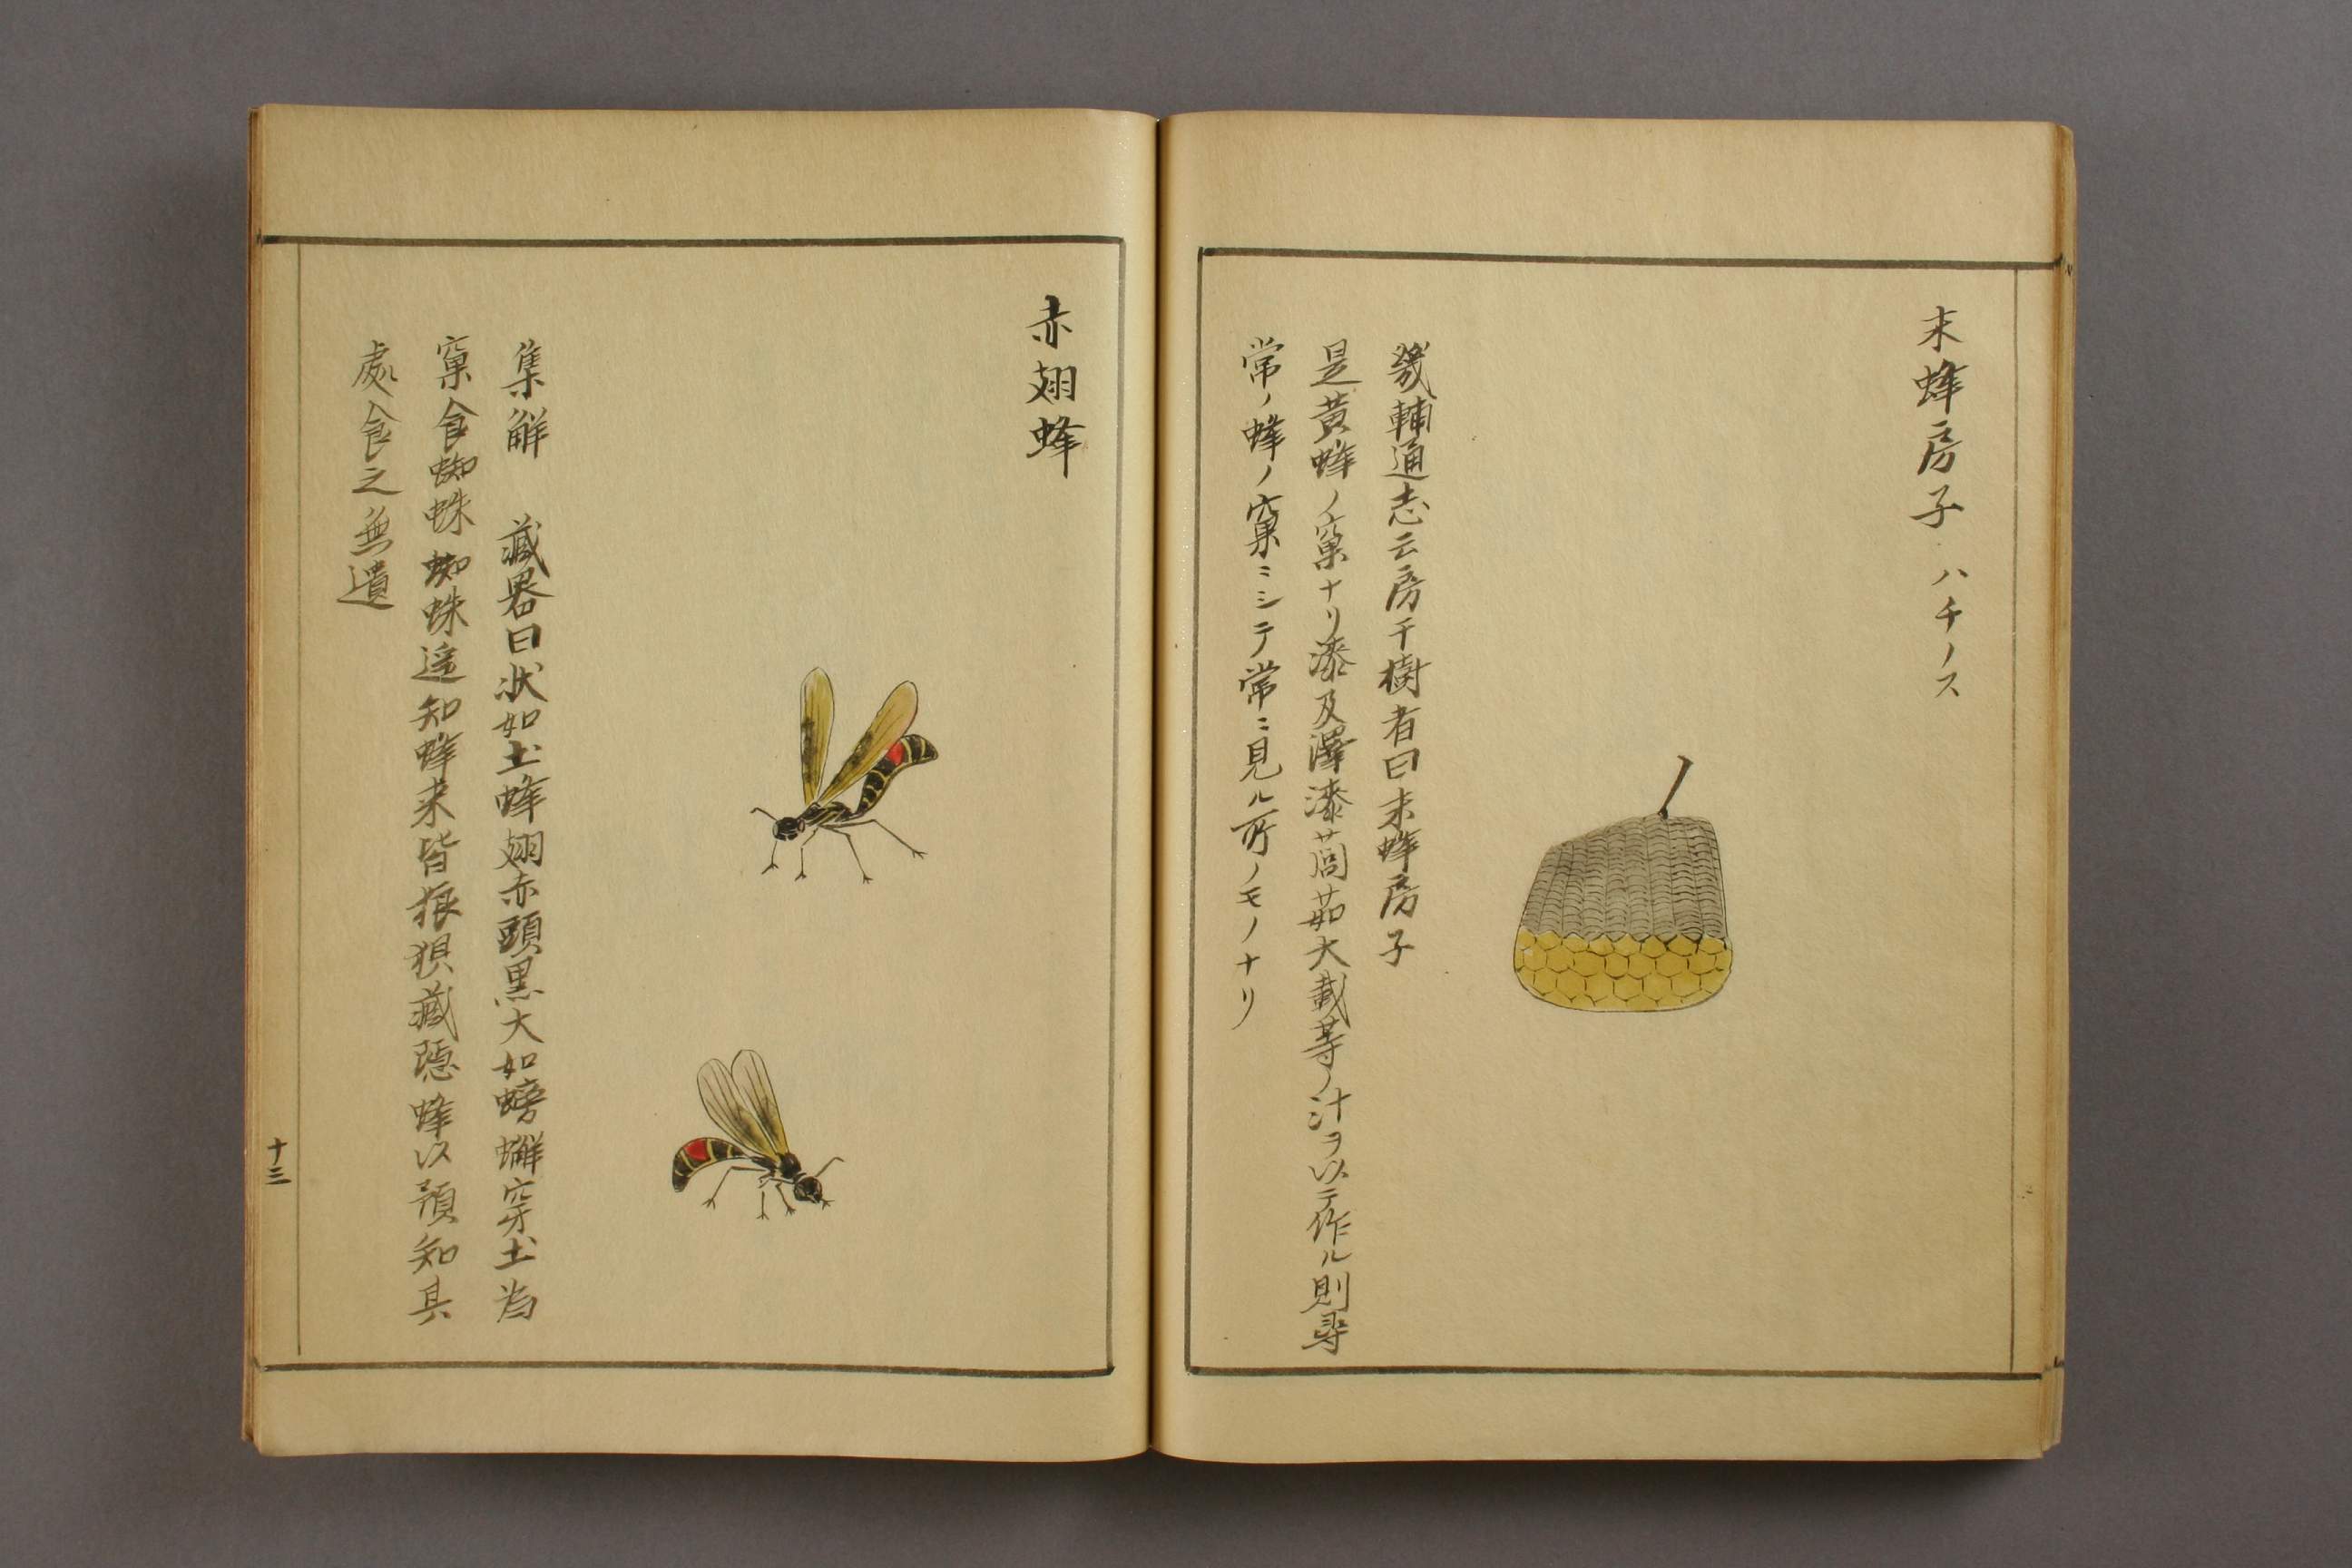 末蜂房子 ハチノス
畿輔通志云房于樹者曰末蜂房子
是黄蜂ノ窠ナリ漆及澤漆茼茹大戟等ノ汁ヲ以テ作ル則尋
常ノ蜂ノ窠ニシテ常ニ見ル所ノモノナリ
赤翅蜂
集解 藏器曰状如土蜂翅赤頭黒大如螃蠏穿土為
窠食蜘蛛蜘蛛遥知蜂来皆狼狽藏隠蜂以預知其
處食之無遺
十三